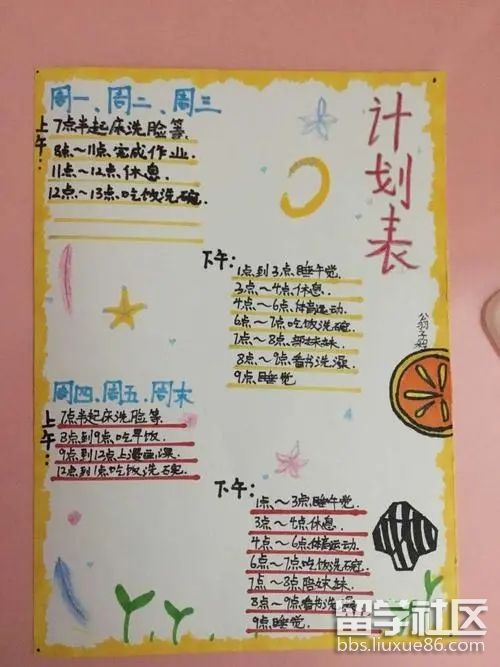 计划表
周一、周二、周三
上午:
7点半起床洗脸等.
8点~11点完成作业.
11点~12点休息.
12点~13点吃饭洗碗.
下午:
1点到3点睡午觉.
3点~4点休息.
4点~6点体育运动.
6点~7点吃饭洗碗.
7点~8点陪妹妹.
8点~9点看书洗澡.
9点睡觉
周四、周五、周末
上午:
7点半起床洗脸等.
8点到9点吃早饭.
9点到12点上漫画课.
12点到1点吃饭洗碗.
下午:
1点~3点睡午觉.
3点~4点休息.
4点~6点体育运动.
6点~7点吃饭洗碗.
7点~8点陪妹妹.
8点~9点看书洗澡.
9点睡觉.
留学社区
bbs.liuxue86.com